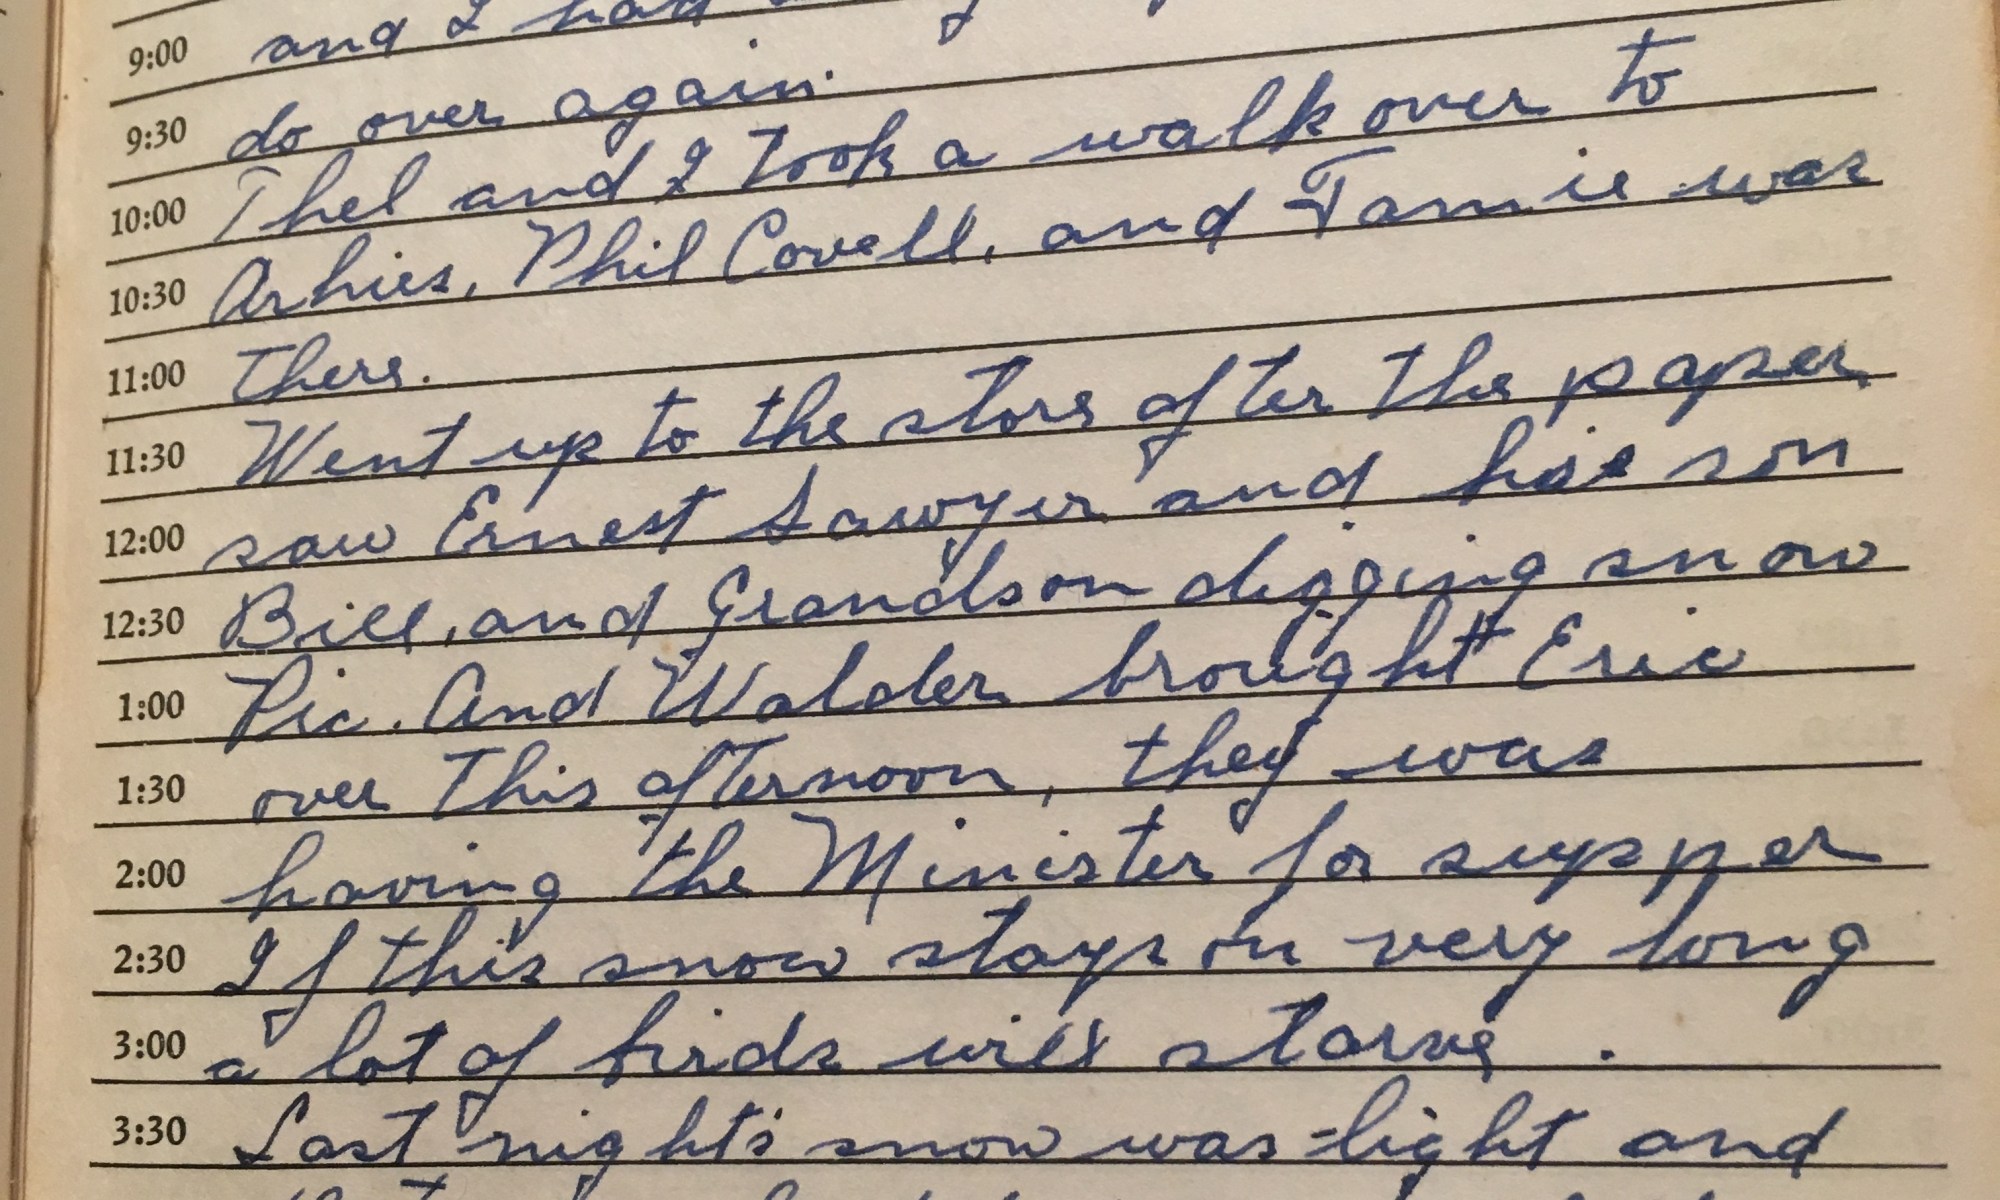 9:00 and I had
9:30 do over again.
10:00 Thel and I took a walk over to
10:30 Arhies, Phil Covell, and Tamie was
11:00 there.
11:30 Went up to the store after the paper
12:00 saw Ernest Sawyer and his son
12:30 Bill, and Grandson digging snow
1:00 Pic. And Walder brought Eric
1:30 over this afternoon, they was
2:00 having the Minister for supper
2:30 If this snow stays on very long
3:00 a lot of birds will starve .
3:30 Last night's snow was light and